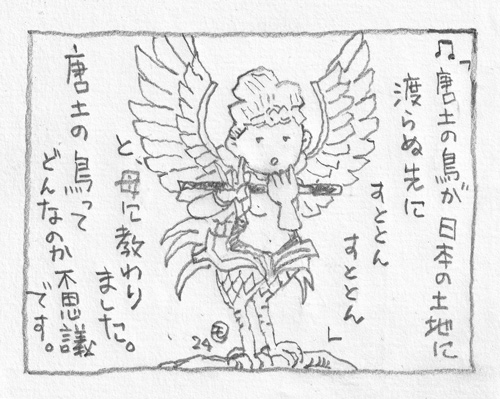 ♫「唐土の鳥が日本の土地に
渡らぬ先に
すととん
すととん」
と、母に教わり
ました。
唐土の鳥って
どんなのか不思議
です。
24